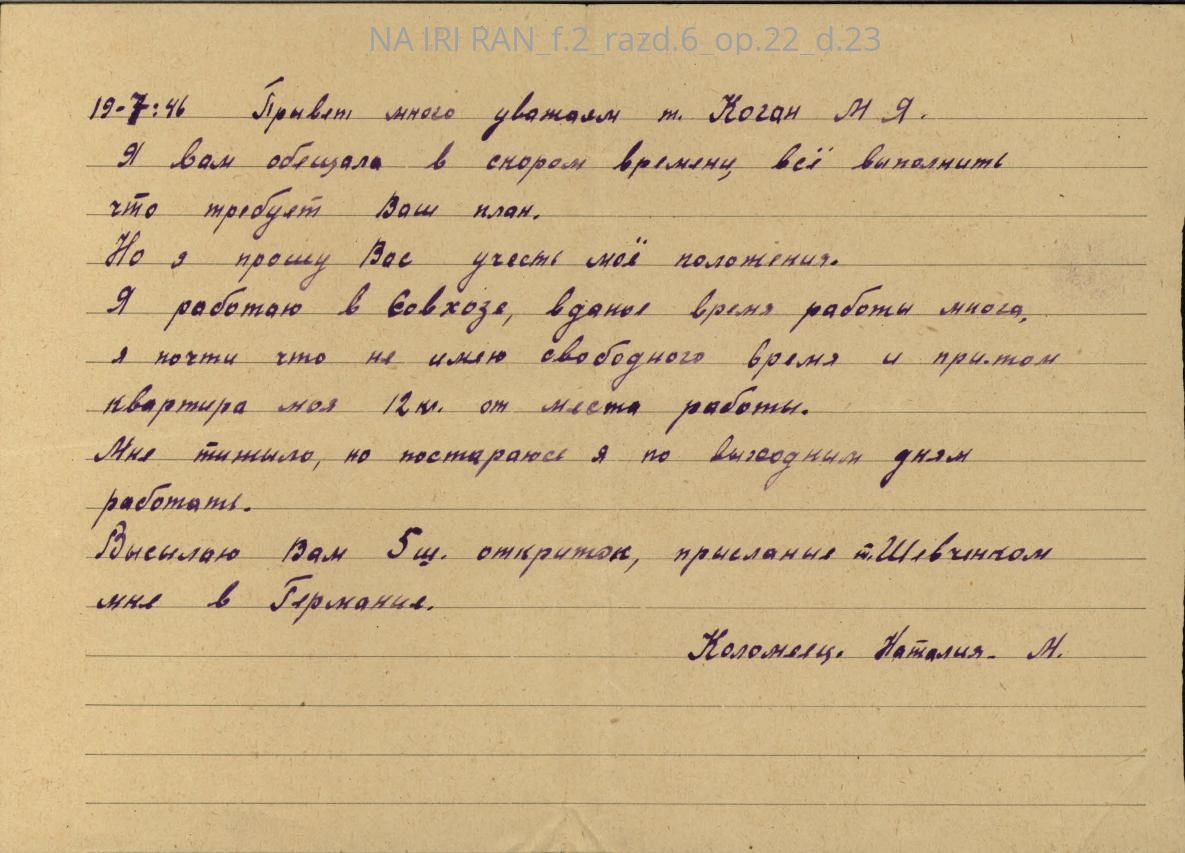 NA IRI RAN_f.2_razd.6_op.22_d.23
19-7:46 Привет много уважаем т. Коган М Я.
Я вам обещала в скором времени, всё выполнить
что требует Ваш план.
Но я прошу Вас учесть моё положения.
Я работаю в Совхозе, вданое время работы многа,
я почти что не имею свободного время и притом
квартира моя 12 кл. от места работы.
Мне тижыло, но постараюсе я по выходным дням
работать.
Высылаю Вам 5 ш. откриток, присланые т. Шевченком
мне в Германие.
Коломеец. Наталия. М.